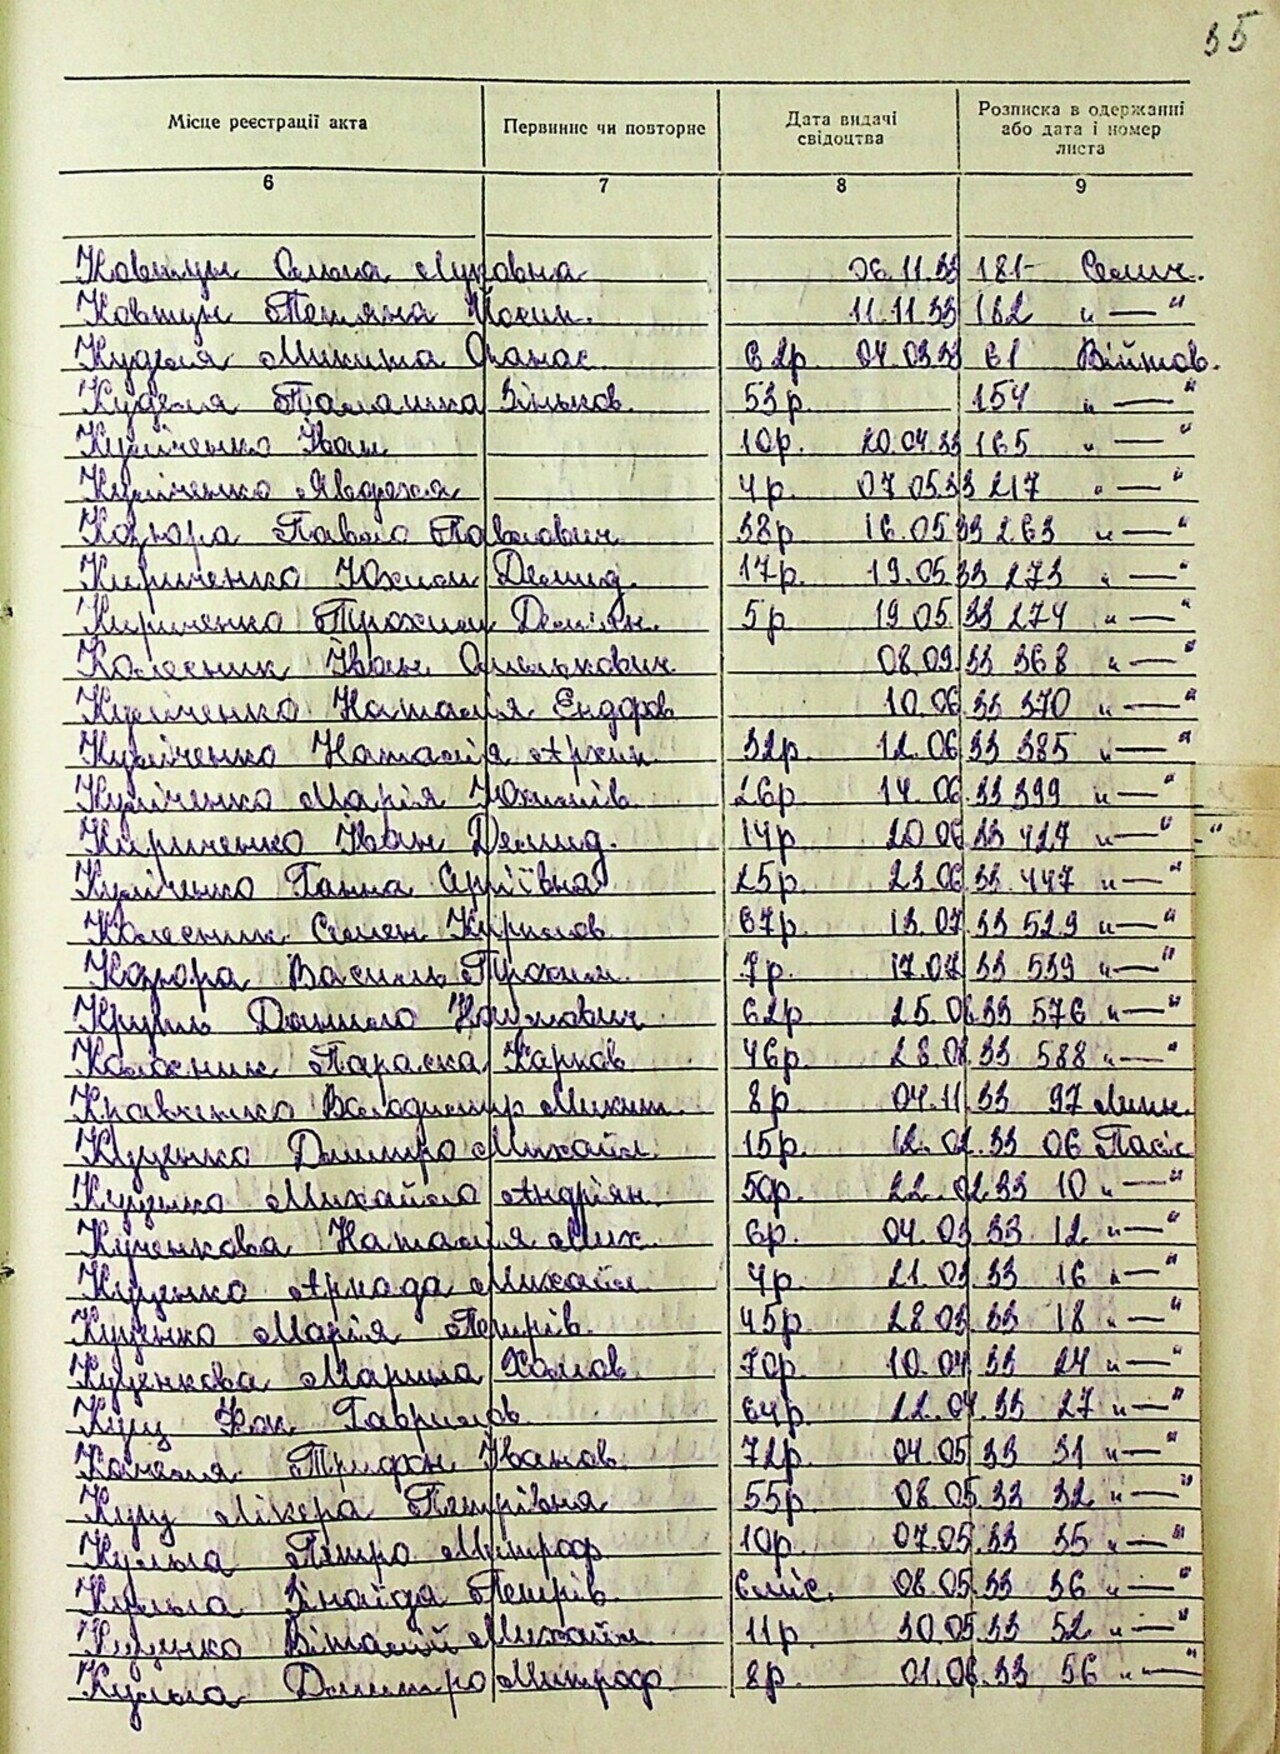 35
Місце реєстрації акта Первинне чи повторне Дата видачі свідоцтва Розписка в одержанні або дата і номер листа
6 7 8 9
Ковтун Ольга Луковна 06.11.33 181 - Селич.
Ковтун Тетяна Йосип. 11.11.33 182 " — "
Куделя Микита Опанас. 62р. 04.03.33 61 Війтов.
Куделя Палашка Зіньков. 53р. 154 " — "
Куліченко Іван 10р. 20.04.33 165 " — "
Куліченко Явдоха 4р. 07.05.33 217 " — "
Козюра Павло Павлович 38р 16.05.33 263 " — "
Кириченко Юхим Демид. 17р. 19.05.33 273 " — "
Кириченко Трохим Дем'ян. 5р. 19.05.33 274 " — "
Колесник Іван Омелькович 08.09.33 368 " — "
Куліченко Наталія Ендоров 10.06.33 370 " — "
Куліченко Наталія Архип. 32р. 12.06.33 385 " — "
Куліченко Марія Юхимів. 26р. 14.06.33 399 " — "
Кириченко Іван Демид. 14р 20.06.33 427 " — " - "
Куліченко Ганна Сергіївна 25р. 23.06.33 447 " — "
Колесник Семен Кирилов. 67р. 13.07.33 529 " — "
Козюра Василь Трохим. 7р. 17.07.33 539 " — "
Круть Данило Наумович 62р. 25.08.33 576 " — "
Колосник Параска Карпов. 46р. 28.08.33 588 " — "
Кравченко Володимир Микит. 8р. 04.11.33 97 Липн.
Куценко Дмитро Михайл. 15р. 12.02.33 06 Пасіс
Куценко Михайло Андріян. 50р. 22.02.33 10 " — "
Кученкова Наталія Мих. 6р. 04.03.33 12 " — "
Куценко Аріада Михайл. 4р. 21.03.33 16 " — "
Куценко Марія Петрів. 45р. 28.03.33 18 " — "
Куценкова Марина Хомов. 70р. 10.04.33 24 " — "
Куц Фок Гаврилов. 64р. 22.04.33 27 " — "
Качеля Трифон Іванов. 72р. 04.05.33 31 " — "
Куц Лікера Петрівна 55р. 08.05.33 32 " — "
Кульга Петро Митроф. 10р. 07.05.33 35 " — "
Кульга Зінаїда Петрів. 6міс. 08.05.33 36 " — "
Куценко Віталій Михайл. 11р. 30.05.33 52 " — "
Кульга Дмитро Митроф. 8р. 01.06.33 56 " — "